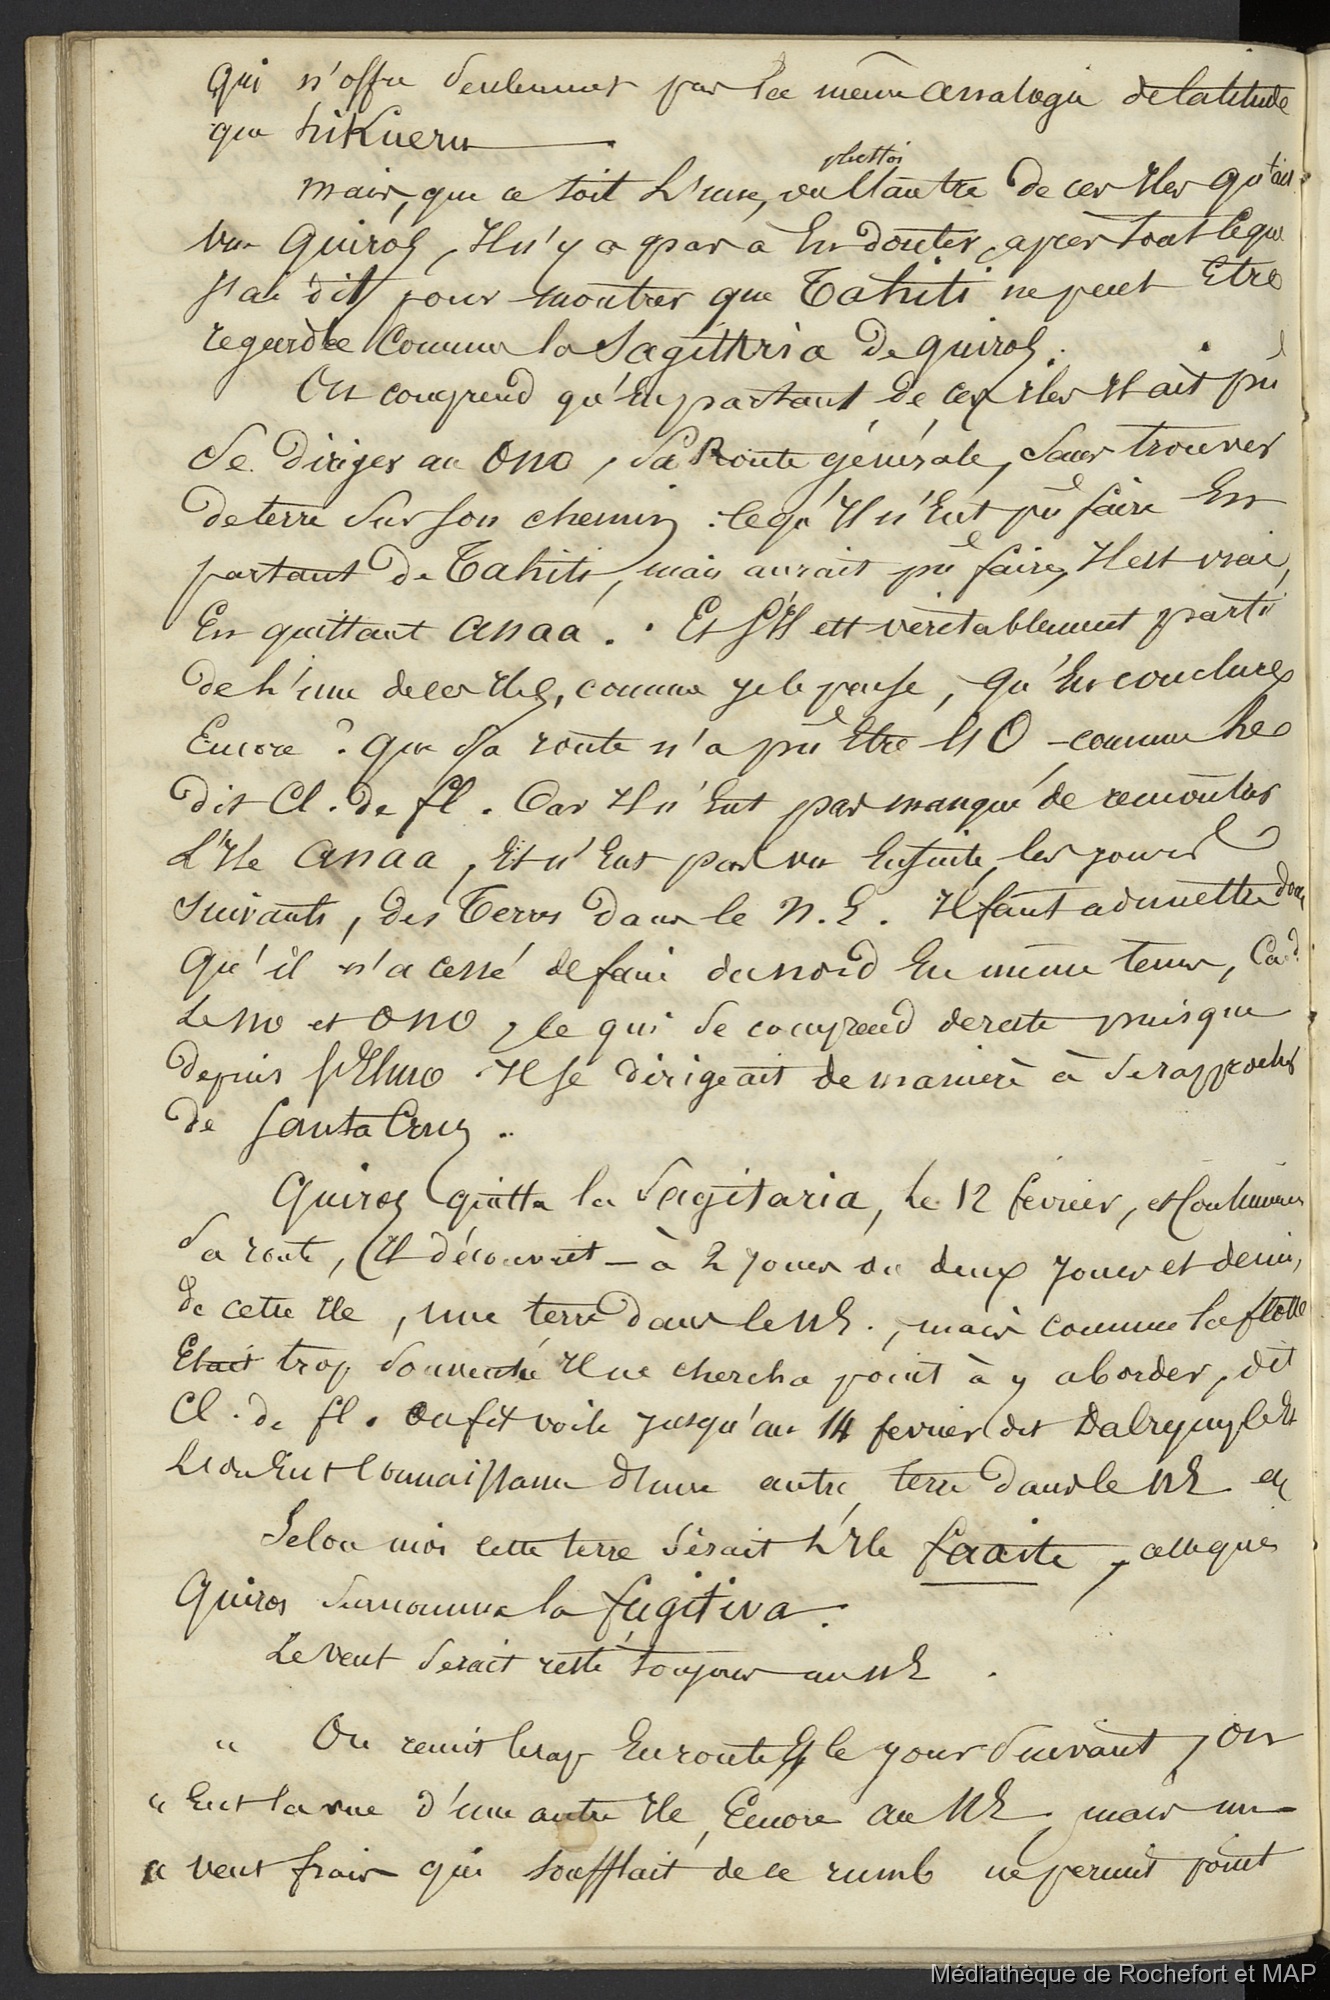 qui n'offre seulement pas la même analogie de latitude
que hiKueru
plustôt
mais, que ce soit L'une, ou L'autre de ces Iles qu'ait
vu Quiros, Il n'y a pas à En douter, après tout ce que
j'ai dit pour montrer que Tahiti ne peut Etre
regardée Comme la Sagittaria de quiros.
On comprend qu'En partant de ces Iles Il ait pu
se diriger au ONO, sa Route générale, sans trouver
de terre sur son chemin : ce qu'Il n'Eut pu faire En
partant de Tahiti, mais aurait pu faire, Il est vrai,
En quittant anaa. Et s'Il est véritablement parti
de L'une de ces Iles, comme je le pense, qu'En conclure
Encore ? que sa route n'a pu Etre NO - comme Le
dit Cl. de fl. Car Il n'Eut pas manqué de remonter
L'Ile anaa, Et n'Eut pas vu Ensuite, les jours
suivants, des Terres dans le N.E. Il faut admettre donc
qu'il n'a cessé de faire du nord En même tems, Cad.
Le no et ONO, ce qui se comprend dereste puisque
depuis St Elmo Il se dirigeait de manière à se rapprocher
de Santa Cruz.
Quiros quitta la Sagitaria, Le 12 février, et Continuant
sa route, Il découvrit - à 2 jours ou deux jours et demi,
de cette Ile, une terre dans le NE., mais comme la flotte
Etait trop sousventée Il ne chercha point à y aborder, dit
Cl. de fl. On fit voile jusqu'au 14 fevrier dit Dalrymple Et
L'on Eut Connaissance d'une autre terre dans le NE
Selon moi cette terre serait L'Ile faaite, celle que
Quiros surnomma la fugitiva.
Le vent serait resté toujours au NE.
" On remit le cap En route Et le jour suivant, on
" Eut la vue d'une autre Ile, Encore au NE, mais un
" vent frais qui soufflait de ce rumb ne permit point
Médiathèque de Rochefort et MAP